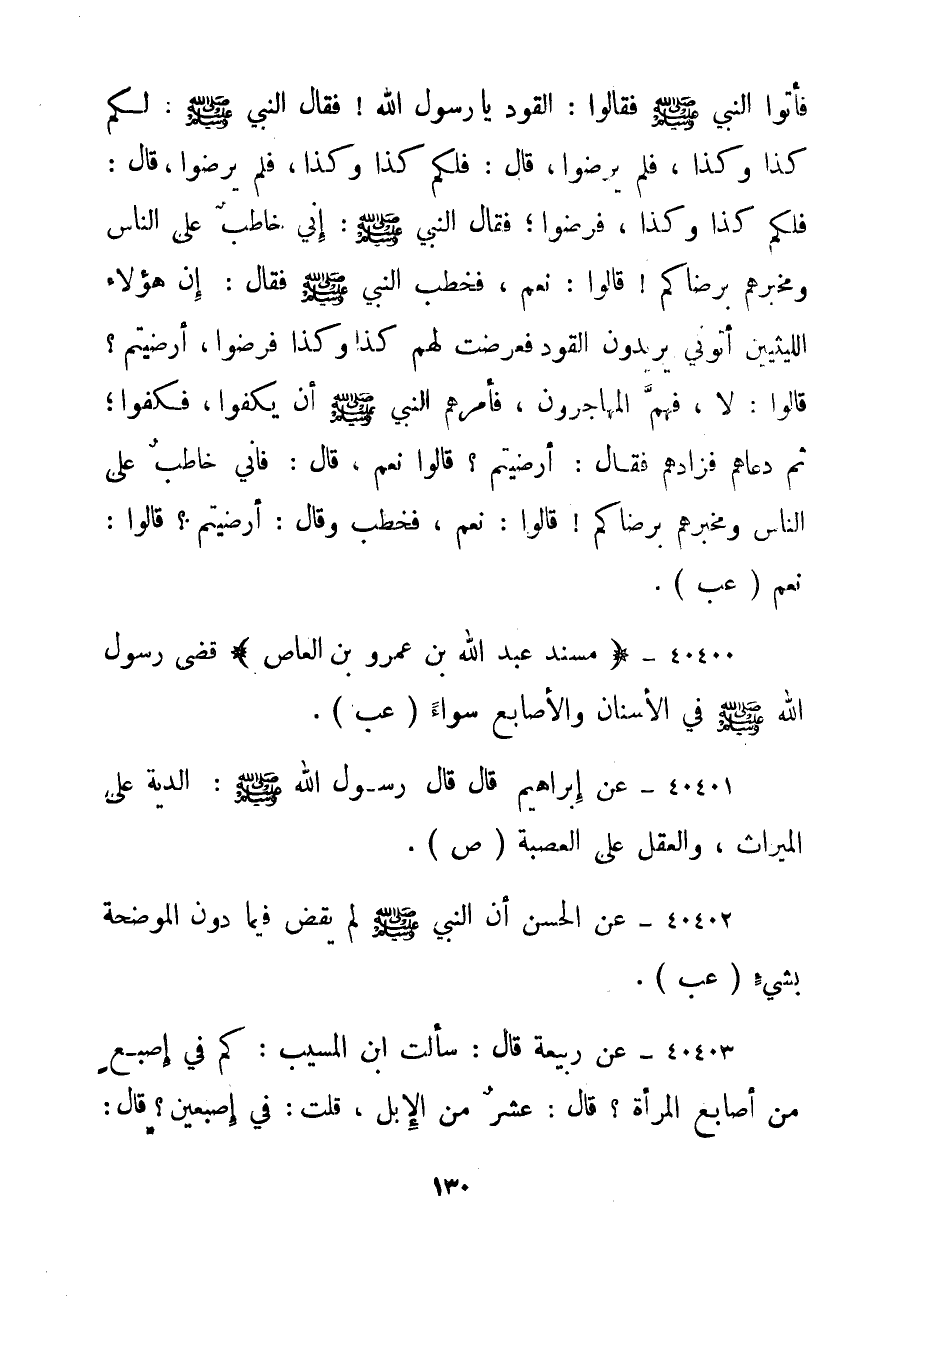 فأتوا النبي ﷺ فقالوا : القود يا رسول الله ! فقال النبي ﷺ : لكم
كذا وكذا ، فلم يرضوا، قال : فلكم كذا وكذا ، فلم يرضوا ، قال :
فلكم كذا وكذا ، فرضوا ؛ فقال النبي ﷺ : إني خاطبٌ على الناس
ومخبرهم برضاكم ! قالوا : نعم ، فخطب النبي ﷺ فقال : إن هؤلاء
الليثيين أتوني يريدون القود فعرضت لهم كذا وكذا فرضوا ، أرضيتم ؟
قالوا : لا ، فهمَّ المهاجرون ، فأمرهم النبي ﷺ أن يكفوا ، فكفوا ؛
ثم دعاهم فزادهم فقال : أرضيتم ؟ قالوا نعم ، قال : فاني خاطبٌ على
الناس ومخبرهم برضاكم ! قالوا : نعم ، فخطب وقال : أرضيتم ؟ قالوا :
نعم ( عب ) .
٤٠٤٠٠ ـ ﴿ مسند عبد الله بن عمرو بن العاص ﴾ قضى رسول
الله ﷺ في الأسنان والأصابع سواءً ( عب ) .
٤٠٤٠١ ـ عن إبراهيم قال قال رسول الله ﷺ : الدية على
الميراث ، والعقل على العصبة ( ص ) .
٤٠٤٠٢ ـ عن الحسن أن النبي ﷺ لم يقض فيما دون الموضحة
بشيءٍ ( عب ) .
٤٠٤٠٣ ـ عن ربيعة قال : سألت ابن المسيب : كم في إصبعٍ
من أصابع المرأة ؟ قال : عشرٌ من الإبل ، قلت : في إصبعين ؟ قال :
١٣٠